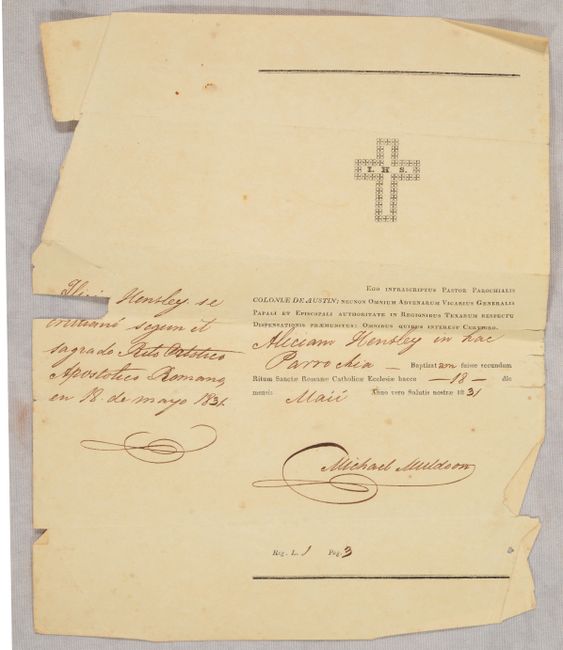 I. H. S.
Hensley se
cristianó segun el
sagrado Rito Catolico
Apostolico Romano,
en 18. de mayo 1831.
Ego infrascriptus Pastor Parochialis
COLONIÆ DE AUSTIN; necnon Omnium Advenarum Vicarius Generalis
Papali et Episcopali authoritate in Regionibus Texanum respectu
Dispensationis præmunitus: Omnibus quibus interest Certioro.
Aliciam Hensley in hac
Parrochia — Baptizatam fuisse secundum
Ritum Sanctæ Romanæ Catholicæ Ecclesiæ hacce —18— die
mensis Maii Anno vero Salutis nostræ 1831
Michael Muldoon
Reg. L. 1 Pag. 3